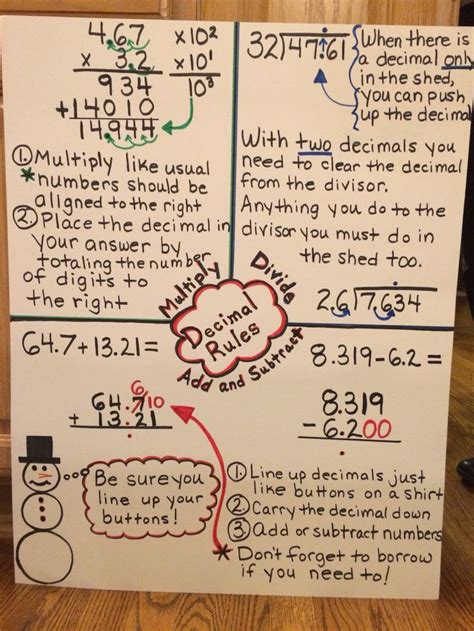 4.67
x 3.2
934
+14010
14.944
x10²
x10¹
10³
①Multiply like usual
*numbers should be
aligned to the right
②Place the decimal in
your answer by
totaling the number
of digits to
the right
32)47.61
When there is
a decimal only
in the shed,
you can push
up the decimal
With two decimals you
need to clear the decimal
from the divisor.
Anything you do to the
divisor you must do in
the shed too.
2.6)7.634
Multiply
Divide
Decimal
Rules
Add and Subtract
64.7+13.21=
6
64.710
+ 13.21
.
Be sure you
line up your
buttons!
8.319-6.2=
8.319
- 6.200
.
①Line up decimals just
like buttons on a shirt
②Carry the decimal down
③Add or subtract numbers
*Don't forget to borrow
if you need to!